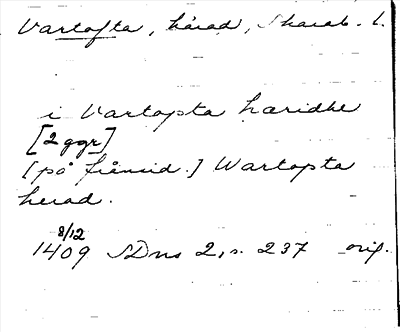 Vartofta, härad, Skarab. l.
i Vartopta hæridhe
[2 ggr]
[på frånsid.] Wartopta
herad.
8/12
1409 SDns 2, s. 237 orig.